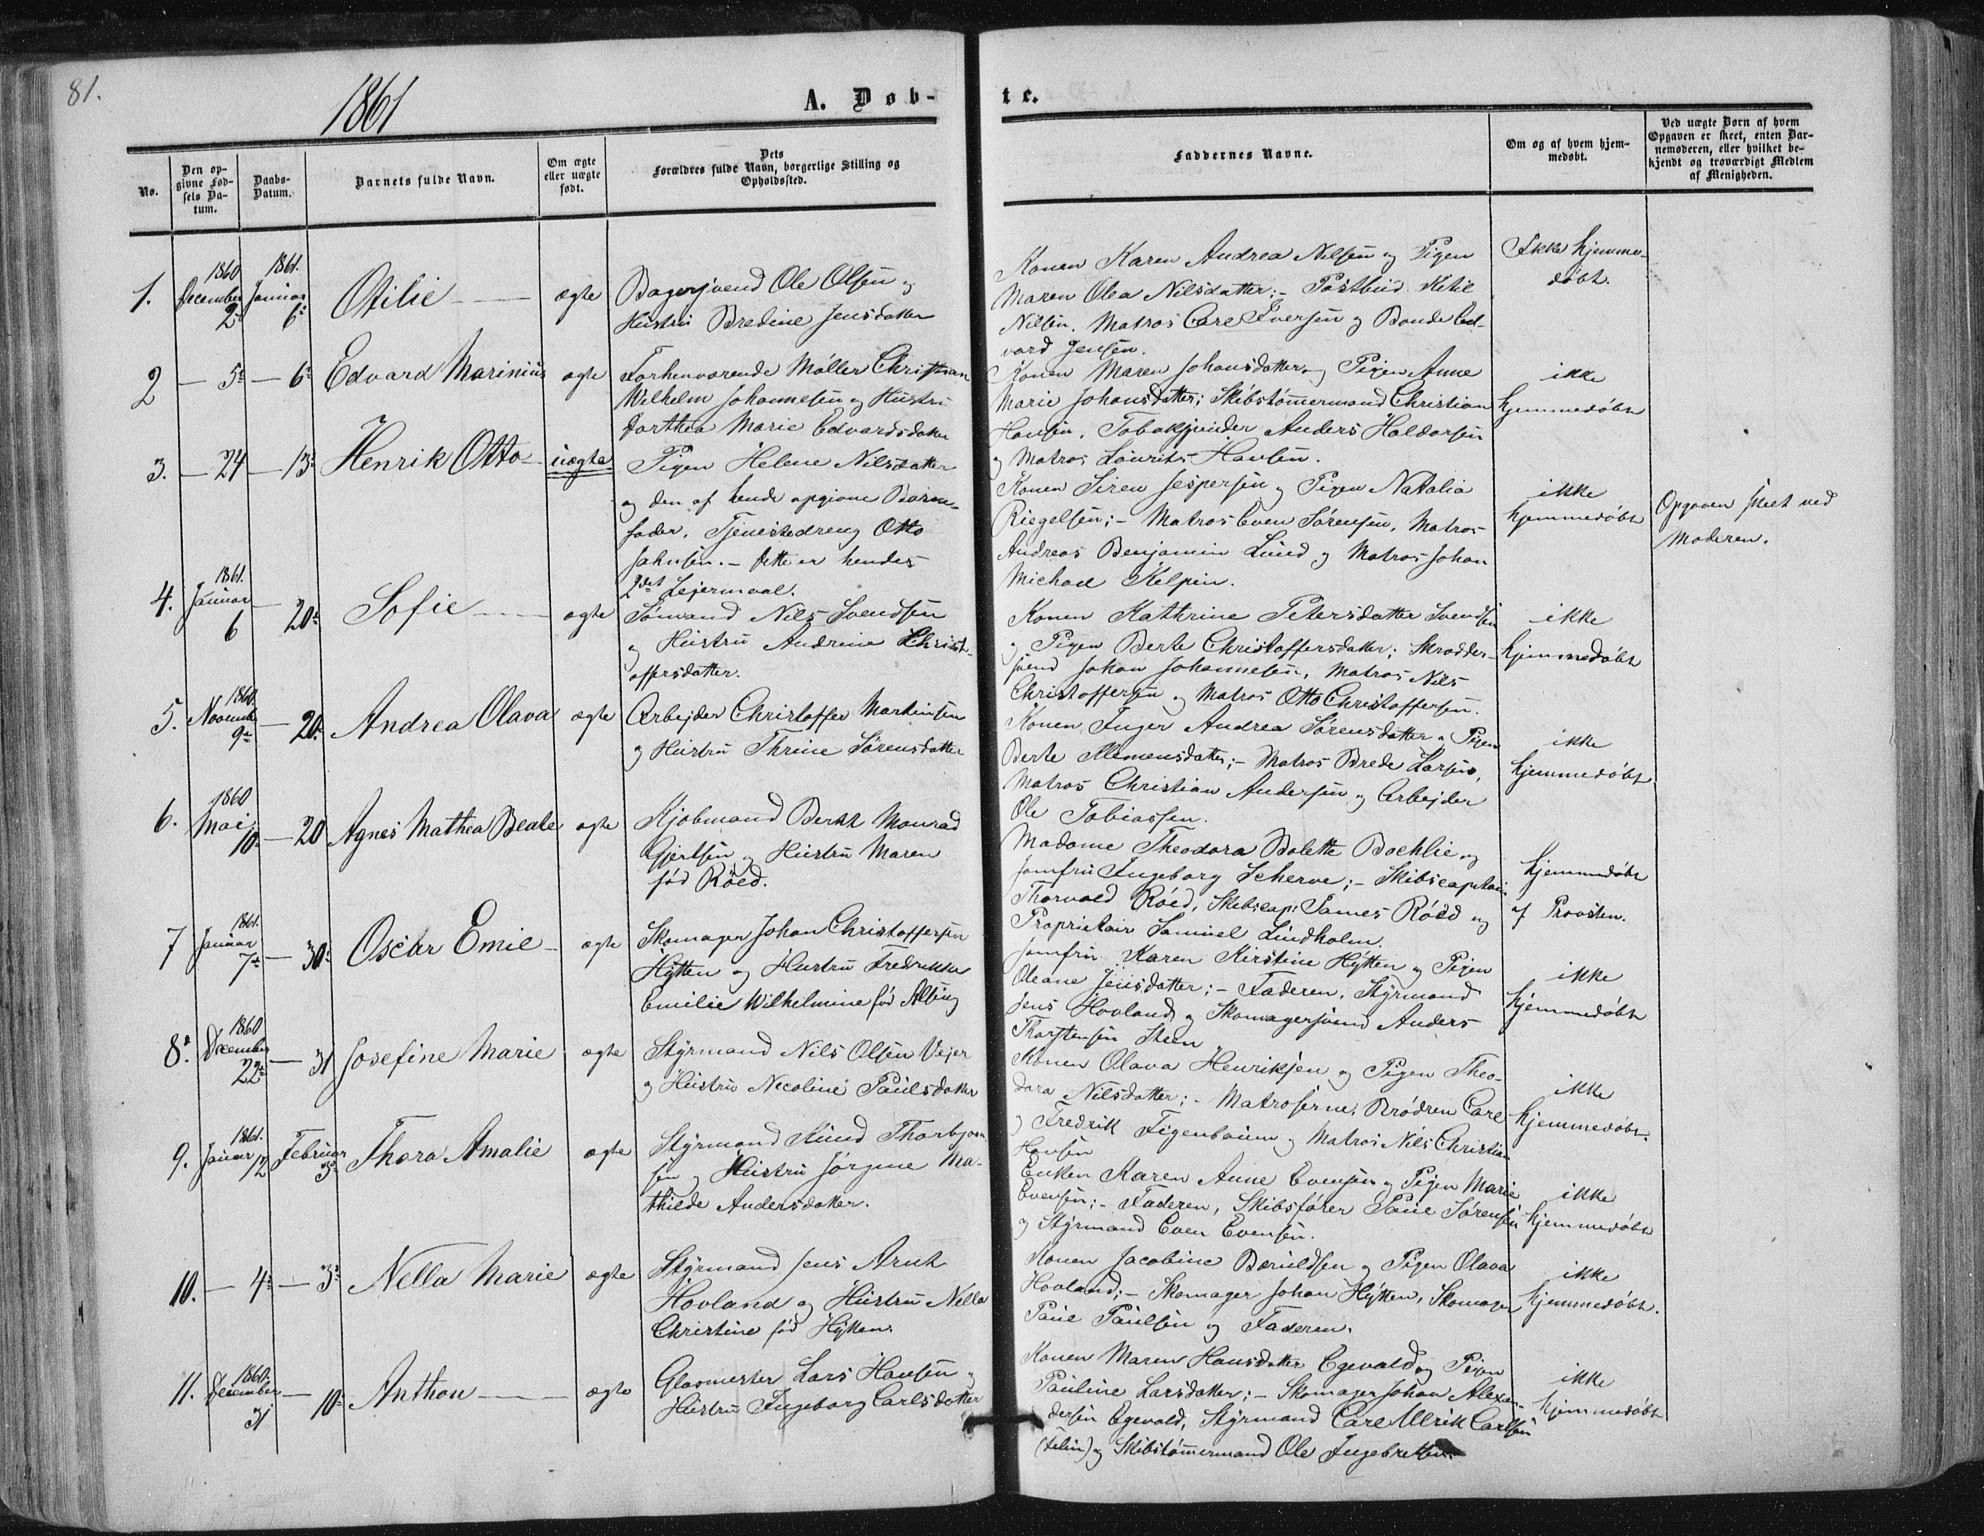 81.
1861
A. Døb-
te.
No.
Den op-
givne Fød-
sels Da-
tum.
Daabs-
Datum.
Barnets fulde Navn.
Om ægte
eller uægte
født.
Dets
Forældres fulde Navn, borgerlige Stilling og
Opholdssted.
Faddernes Navne.
Om og af hvem hjem-
medøbt.
Ved uægte Børn af hvem
Opgaven er skeet, enten Bar-
nemoderen, eller hvilket be-
kjendt og troværdigt Medlem
af Menigheden.
1. 1860 December 2 1861. Januar 6 Otilie ægte
Bagersvend Ole Olsen og
Hustru Bredine Jensdatter
Konen Karen Andrea Nilsen og Pigen
Maren Olea Nilsdatter; - Postbud Ketil
Nilsen, Matros Carl Iversen og Bonde Ed-
vard Jensen.
Ikke hjemme-
døbt.
2 - 5 - 6 Edvard Marinius ægte
Forhenværende Møller Christian
Wilhelm Johannesen og Hustru
Dorthea Marie Edvardsdatter
Konen Maren Johansdatter og Pigen Anne
Marie Johansdatter; Skibstømmermand Christian
Hansen, Tobakspinder Anders Haldorsen
og Matros Lauritz Hansen.
ikke
hjemmedøbt
3. - 24 - 13 Henrik Otto uægte
Pigen Helene Nilsdatter
og den af hende opgivne Barne-
fader, Tjenestedreng Otto
Jahnsen. - Dette er hendes
2det Lejermaal.
Konen Siren Jespersen og Pigen Natalia
Riegelsen; - Matros Even Sørensen, Matros
Andreas Benjamin Lund og Matros Johan
Michael Kelpin.
ikke
hjemmedøbt
Opgaven skeet ved
Moderen.
4. 1861. Januar 6 - 20 Sofie ægte
Sømand Nils Svendsen
og Hustru Andrine Christ-
offersdatter.
Konen Kathrine Petersdatter Svendsen
og Pigen Berte Christoffersdatter; Skrædder-
svend Johan Johannesen, Matros Nils
Christoffersen og Matros Otto Christoffersen.
ikke
hjemmedøbt
5. 1860. Novembr 9 - 20 Andrea Olava ægte
Arbejder Christoffer Martinsen
og Hustru Thrine Sørensdatter
Konen Inger Andrea Sørensdatter og Pigen
Berte Clemensdatter; - Matros Brede Larsen,
Matros Christian Andersen og Arbejder
Ole Tobiassen.
ikke
hjemmedøbt.
6. 1860 Mai 10 - 20 Agnes Mathea Beate ægte
Kjøbmand Bernt Monrad
Gjertsen og Hustru Maren
fød Röed.
Madame Theodora Bolette Boehlie og
Jomfru Ingeborg Scherve; - Skibscapitain
Thorvald Röed, Skibscap: James Röed og
Proprietair Samuel Lindholm.
hjemmedøbt
af Provsten.
7 1861. Januar 7 - 30 Oscar Emil ægte
Skomager Johan Christoffersen
Hytten og Hustru Fredrikke
Emilie Wilhelmine fød Albing
Jomfru Karen Kirstine Hytten og Pigen
Oleane Jensdatter; - Faderen, Styrmand
Jens Hovland og Skomagersvend Anders
Thorstensen Steen
ikke
hjemmedøbt
8. 1860 December 22 - 31 Josefine Marie ægte
Styrmand Nils Olsen Vejer
og Hustru Nicoline Paulsdatter
Konen Olava Henriksen og Pigen Theo-
dora Nilsdatter; - Matroserne, Brødren Carl
og Fredrik Figenbaum og Matros Nils Christian
Hansen
ikke
hjemmedøbt.
9. 1861. Januar 12 Februar 3 Thora Amalie ægte
Styrmand Knud Thorbjørn-
sen og Hustru Jørgine Ma-
thilde Andersdatter.
Enken Karen Anne Evensen og Pigen Marie
Evensen; - Faderen, Skibsfører Paul Sørensen
og Styrmand Even Evensen.
ikke
hjemmedøbt
10. - 4 - 3 Nella Marie ægte
Styrmand Jens Arnt
Hovland og Hustru Nella
Christine fød Hytten.
Konen Jacobine Beruldsen og Pigen Olava
Hovland; - Skomager Johan Hytten, Skomager
Paul Paulsen og Faderen.
ikke
hjemmedøbt.
11. 1860. December 31 - 10 Anthon ægte
Glasmester Lars Hansen og
Hustru Ingeborg Carlsdatter
Konen Maren Hansdatter Egevald og Pigen
Pauline Larsdatter; - Skomager Johan Alexan-
dersen Egevald, Styrmand Carl Ulrik Carlsen
og Skibstømmermand Ole Ingebretsen.
ikke
hjemmedøbt